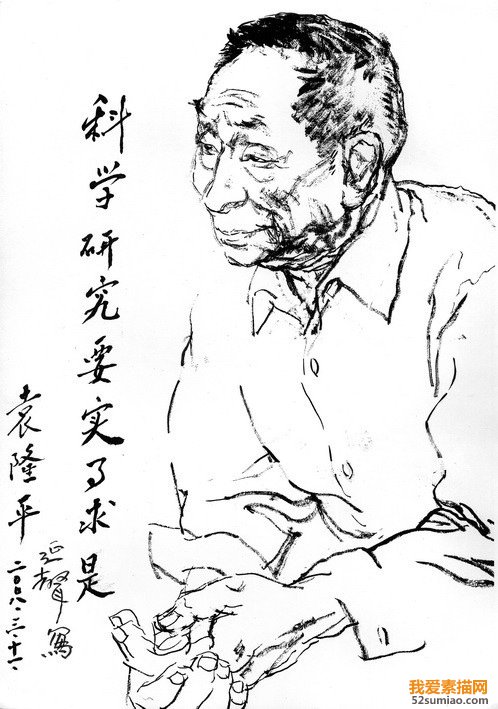 科学研究要实事求是
袁隆平
二〇〇八·三·十一
延聲寫
我爱素描网
52sumiao.com